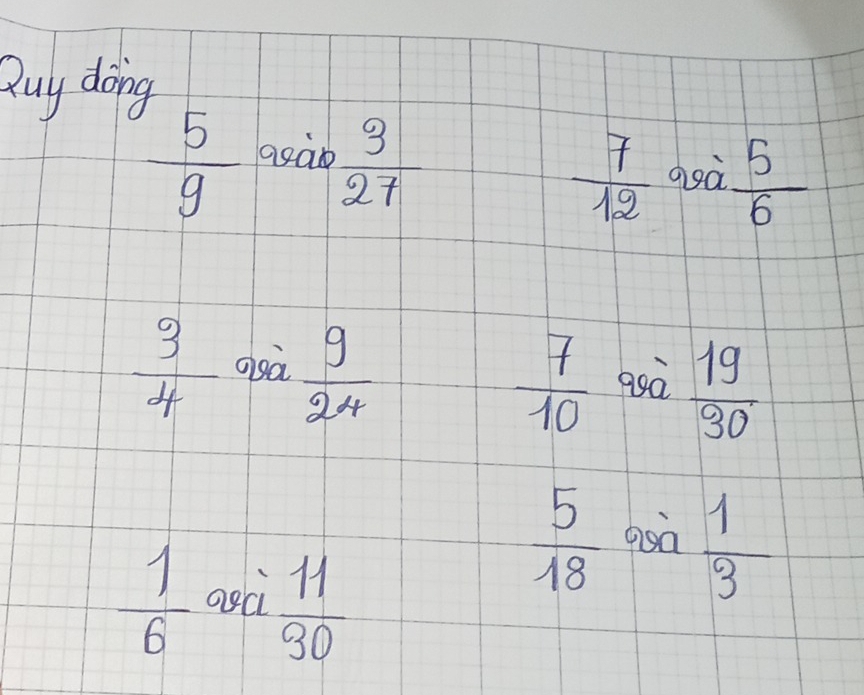 Quy đồng
5/9 và 3/27
7/12 và 5/6
3/4 và 9/24
7/10 và 19/30
1/6 và 11/30
5/18 và 1/3